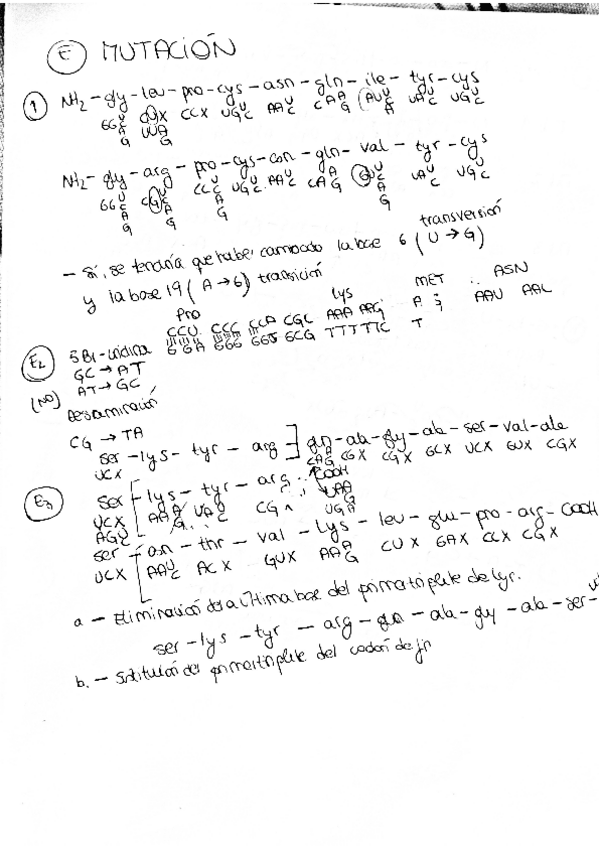 E MUTACIÓN
1 NH2 - gly - leu - pro - cys - asn - gln - ile - tyr - cys
GG CUX CCX UGC AAC CAA AU UAC UGC
UUA
NH2 - gly - arg - pro - cys - asn - gln - val - tyr - cys
GG CG CC UGC AAC CA GU UAC UGC
- Sí, se tendría que haber cambiado la base 6 (U → G) transversión
y la base 19 (A → G) transición
Pro Lys MET ASN
CCU CCC CCA AAA AAG AAU
E2 5Br-uridina GGA GGG TTT TTC T
GC → AT
(NO) AT → GC
Desaminación
CG → TA
ser - lys - tyr - arg gln - ala - gly - ala - ser - val - ala
UCX CAG CGX GCX UCX GUX CGX
E3 Ser lys - tyr - arg . COOH
UCX AAA UAC CG UAA
AGU G UGA
ser - asn - thr - val - lys - leu - glu - pro - arg - COOH
UCX AAU ACX GUX AAA CUX GAX CCX CGX
a - Eliminación de la última base del primer triplete de lys.
ser - lys - tyr - arg - gln - ala - gly - ala - ser -
b. - Sustitución del primer triplete del codón de